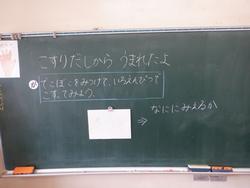 こすりだしから うまれたよ
め でこぼこをみつけて、いろえんぴつで
こすってみよう。
⇒ なににみえるか